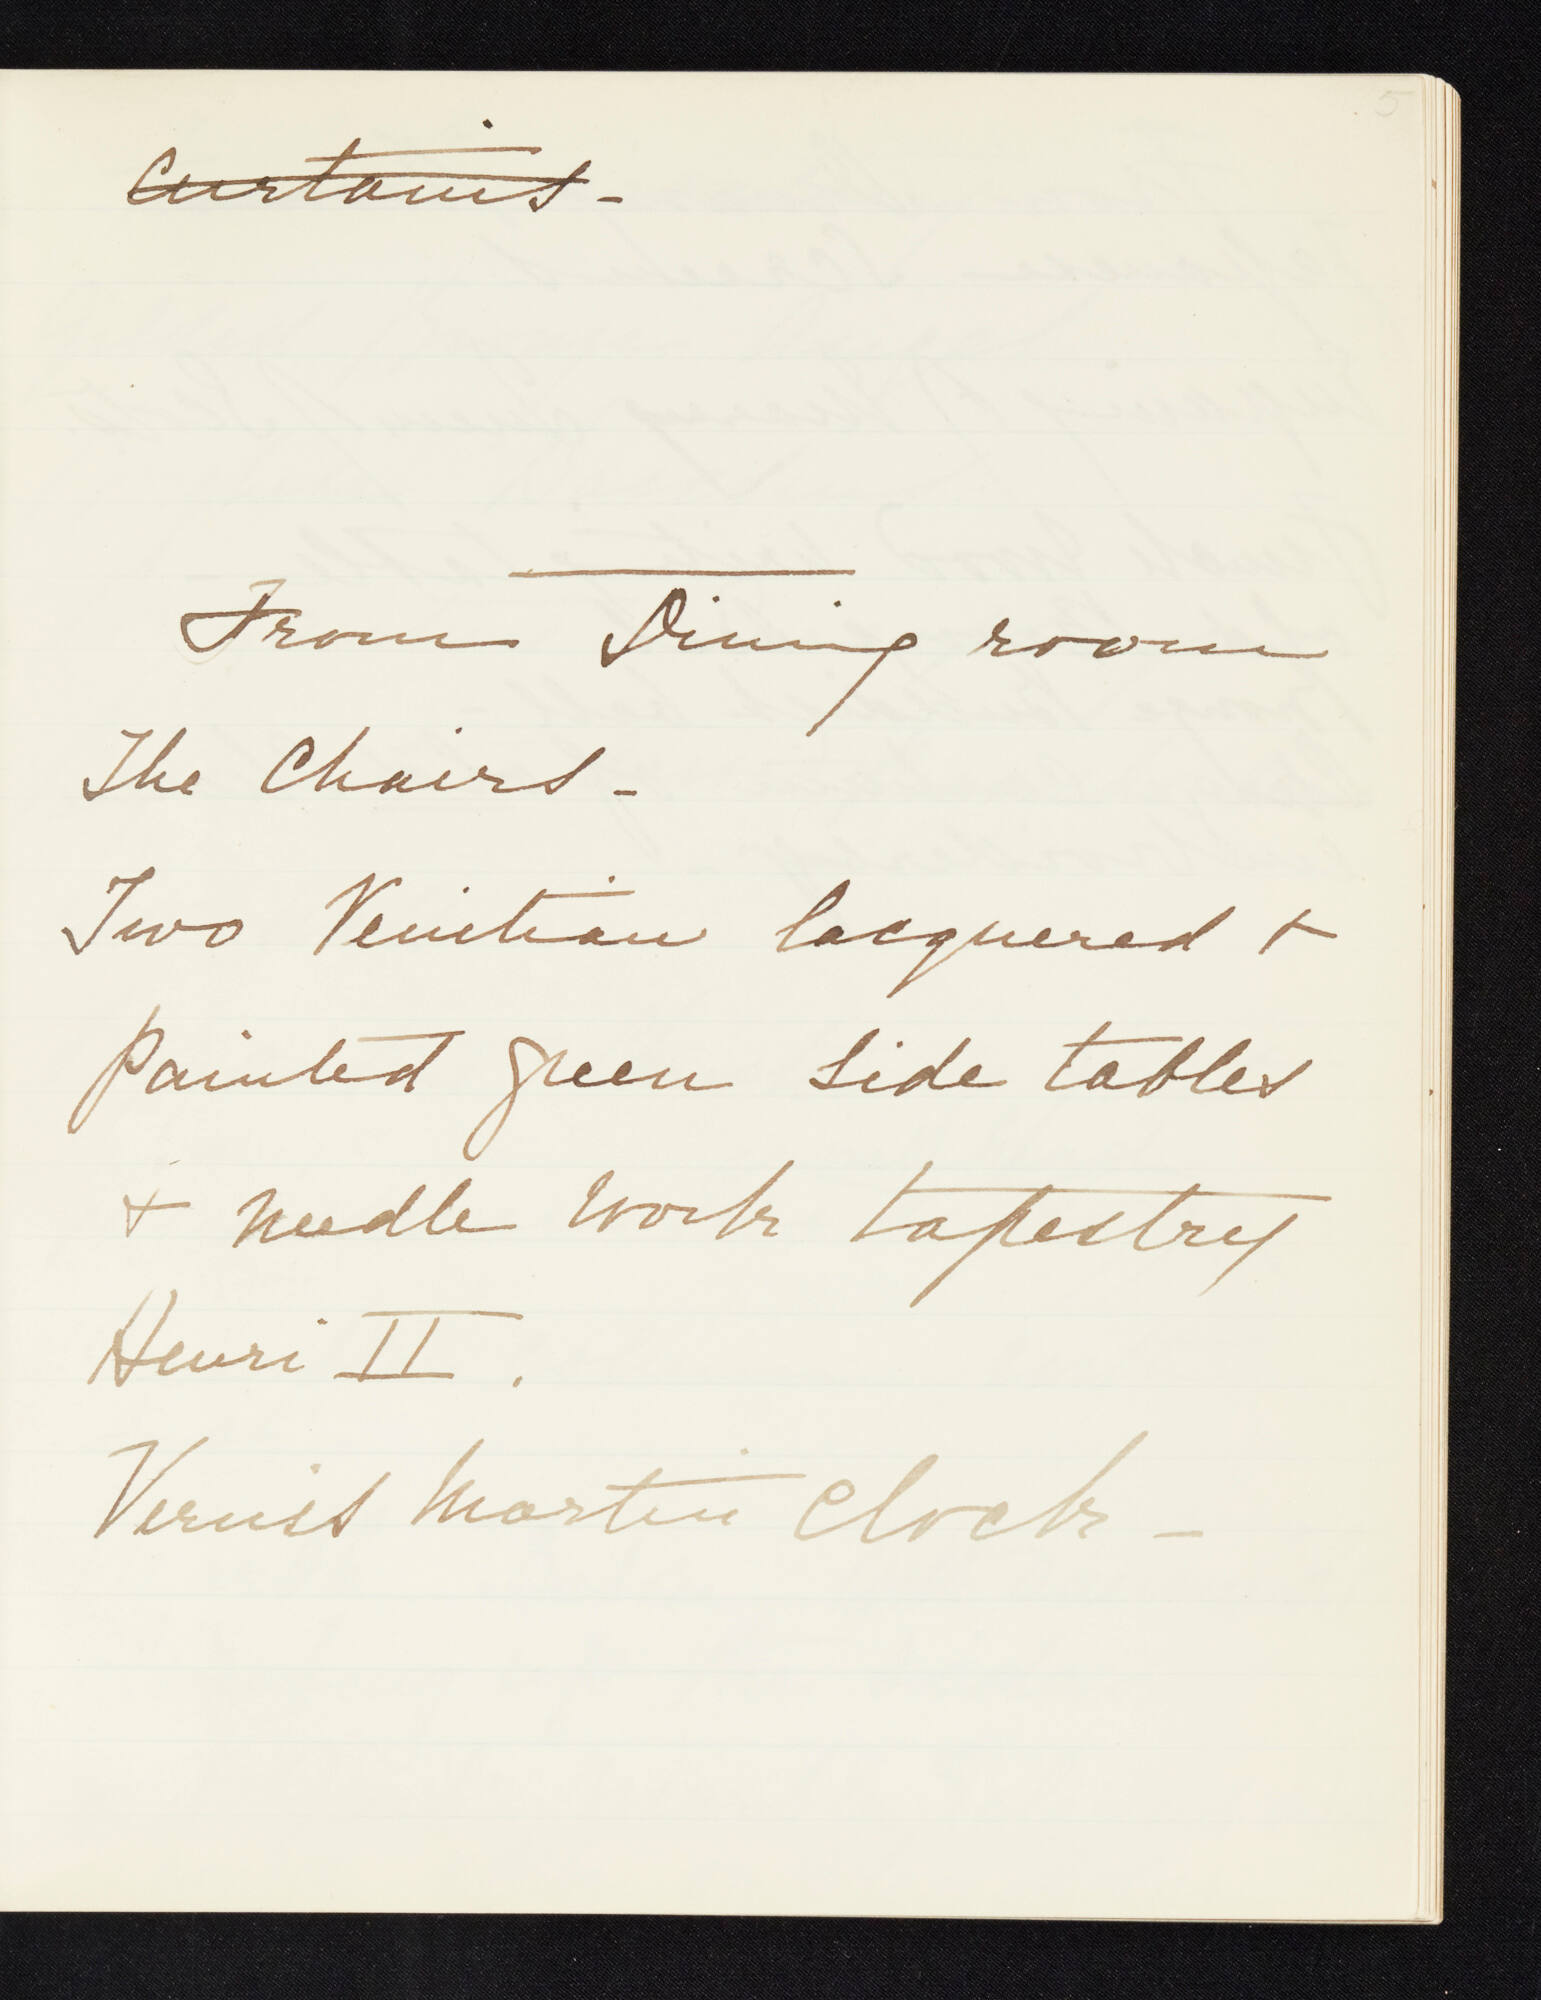 5
Curtains -
From Dining room
The Chairs -
Two Venitian lacquered +
painted green side tables
+ needle work tapestry
Henri II .
Vernis Martin Clock -